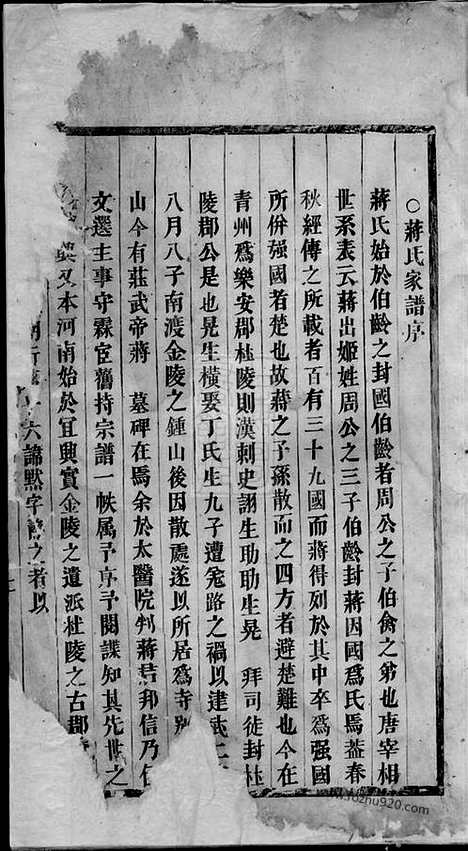 ○蔣氏家譜序
蔣氏始於伯齡之封國伯齡者周公之子伯禽之弟也唐宰相
世系表云蔣出姬姓周公之三子伯齡封蔣因國爲氏焉葢春
秋經傳之所載者百有三十九國而蔣得列於其中卒爲强國
所併强國若楚也故蔣之子孫散而之四方者避楚難也今在
青州爲樂安郡杜陵則漢刺史詡生助助生晃 拜司徒封杜
陵郡公是也晃生橫娶丁氏生九子遭寃路之禍以建武二
八月八子南渡金陵之鍾山後因散處遂以所居爲寺別
山今有莊武帝蔣 墓碑在焉余於太醫院判蔣 邦信乃仁
文選主事守霖宦舊持宗譜一帙属予序予閱諜知其先世之
興又本河南始於宜興實金陵之遺派杜陵之古郡
六諦默字 之者以
www.jiazhu920.com